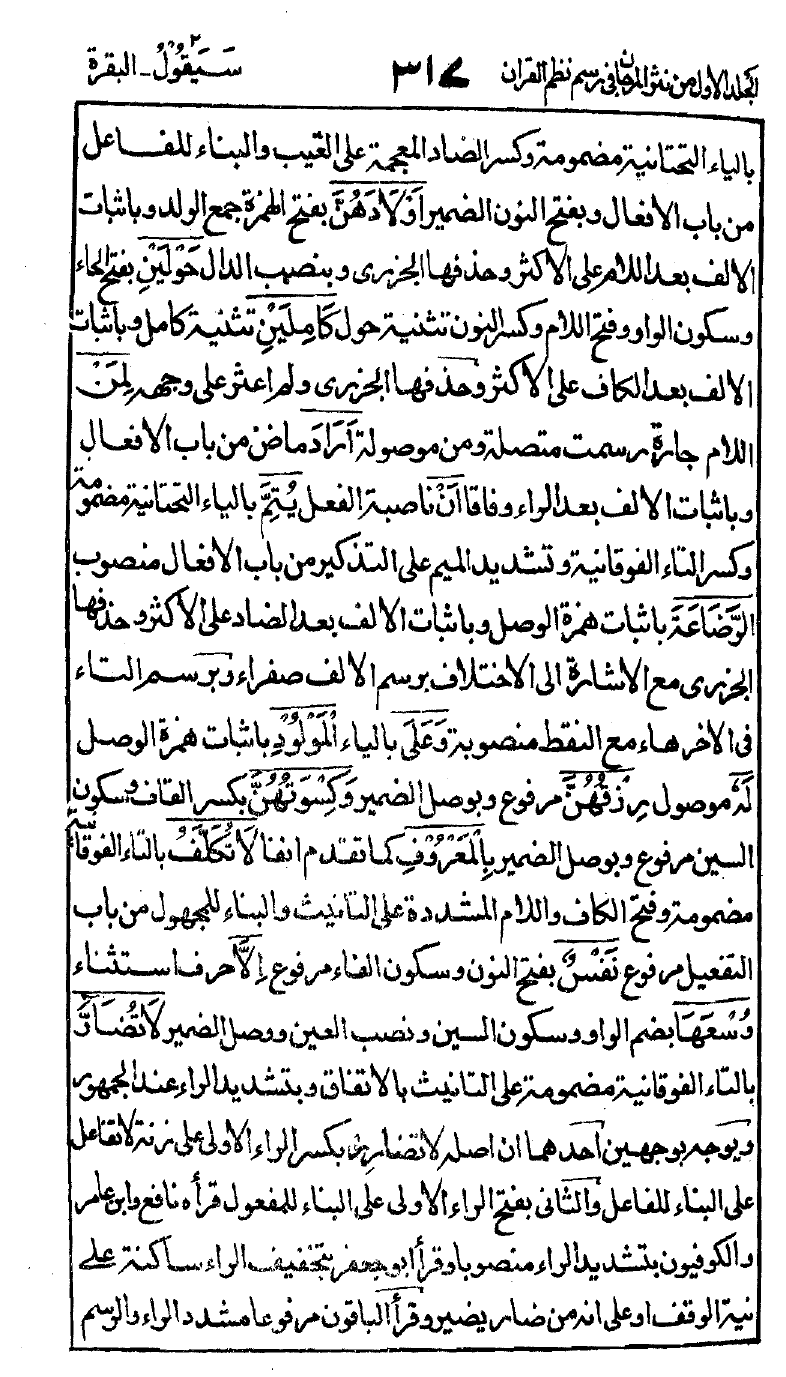 الجلد الاول من نثر المرجان فى رسم نظم القران ٣١٧ سَيَقُولُ ٢ - البقرة
بالياء التحتانية مضمومة وكسر الضاد المعجمة على الغيب والبناء للفاعل
من باب الافعال وبفتح النون الضمير اَوْلَادَهُنَّ بفتح الهمزة جمع الولد وباثبات
الالف بعد اللام على الاكثر وحذفها الجزرى وبنصب الدال حَوْلَيْنِ بفتح الحاء
وسكون الواو وفتح اللام وكسر النون تثنية حول كَامِلَيْنِ تثنية كامل وباثبات
الالف بعد الكاف على الاكثر وحذفها الجزرى ولم اعثر على وجهه لِمَنْ
اللام جارة رسمت متصلة ومن موصولة اَرَادَ ماض من باب الافعال
وباثبات الالف بعد الراء وفاقا اَنْ ناصبة الفعل يُتِمَّ بالياء التحتانية مضمومة
وكسر التاء الفوقانية وتشديد الميم على التذكير من باب الافعال منصوب
الرَّضَاعَةَ باثبات همزة الوصل وباثبات الالف بعد الضاد على الاكثر وحذفها
الجزرى مع الاشارة الى الاختلاف برسم الالف صفراء وبرسم التاء
فى الاخر هاء مع النقط منصوبة وَعَلَى بالياء الْمَوْلُوْدِ باثبات همزة الوصل
لَهٗ موصول رِزْقُهُنَّ مرفوع وبوصل الضمير وَكِسْوَتُهُنَّ بكسر القاف وسكون
السين مرفوع وبوصل الضمير بِالْمَعْرُوْفِ كما تقدم انفا لَا تُكَلَّفُ بالتاء الفوقانية
مضمومة وفتح الكاف واللام المشددة على التانيث والبناء للمجهول من باب
التفعيل مرفوع نَفْسٌ بفتح النون وسكون الفاء مرفوع اِلَّا حرف استثناء
وُسْعَهَا بضم الواو وسكون السين ونصب العين ووصل الضمير لَا تُضَارَّ
بالتاء الفوقانية مضمومة على التانيث بالاتفاق وبتشديد الراء عند الجمهور
ويوجه بوجهين احدهما ان اصله لا تضارر بكسر الراء الاولى على زنة لا تفاعل
على البناء للفاعل والثانى بفتح الراء الاولى على البناء للمفعول قرأه نافع وابن عامر
والكوفيون بتشديد الراء منصوبا وقرأ ابو جعفر بتخفيف الراء ساكنة على
نية الوقف او على انه من ضار يضير وقرأ الباقون مرفوعا مشدد الراء والرسم